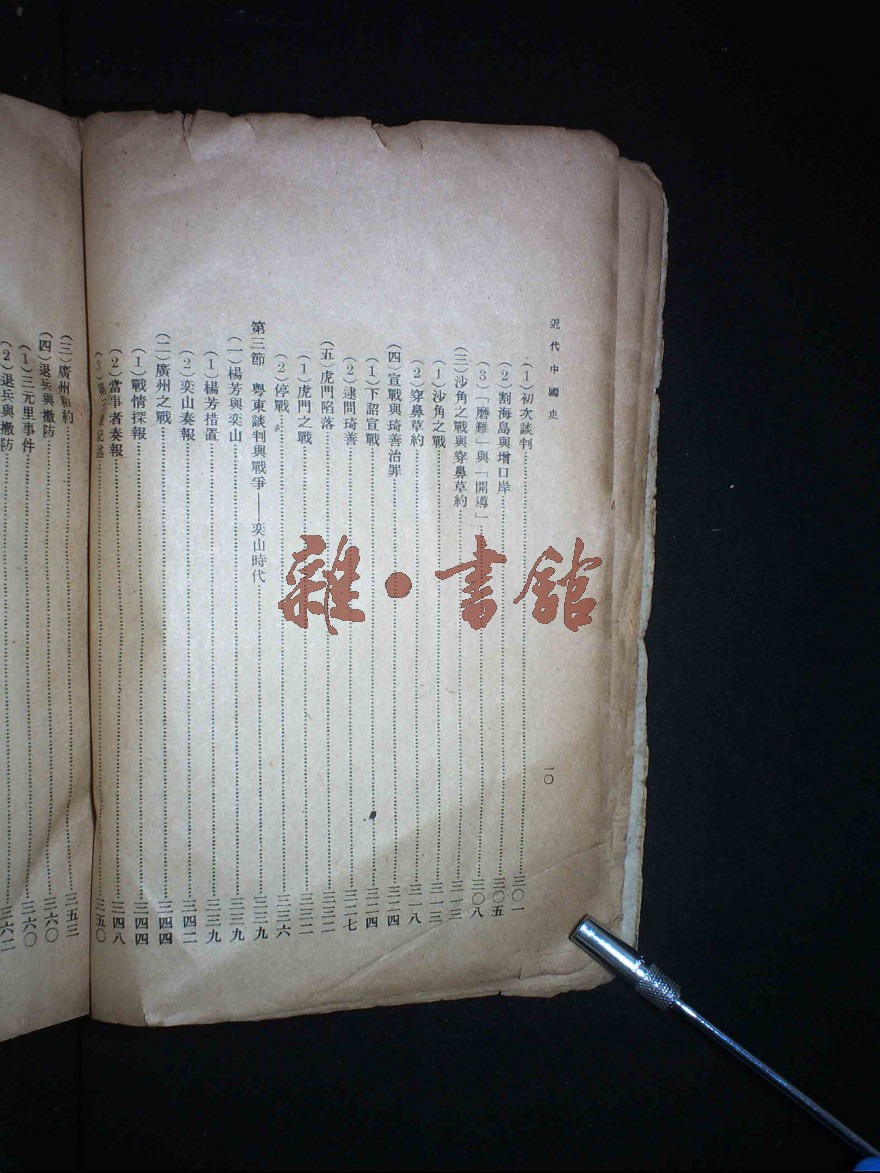 近代中國史
一〇
(1)初次談判……三〇一
(2)割海島與增口岸……三〇五
(3)「磨難」與「開導」……三〇八
(三)沙角之戰與穿鼻草約……三一三
(1)沙角之戰……三一三
(2)穿鼻草約……三一八
(四)宣戰與琦善治罪……三二四
(1)下詔宣戰……三二四
(2)逮問琦善……三二七
(五)虎門陷落……三三二
(1)虎門之戰……三三二
(2)停戰……三三六
第三節 粵東談判與戰爭——奕山時代……三三九
(一)楊芳與奕山……三三九
(1)楊芳措置……三三九
(2)奕山奏報……三四二
(二)廣州之戰……三四四
(1)戰情探報……三四四
(2)當事者奏報……三四八
(3)記述……三五〇
(三)廣州和約……三五三
(四)退兵與撤防……三六〇
(1)三元里事件……三六〇
(2)退兵與撤防……三六二
雜·書館